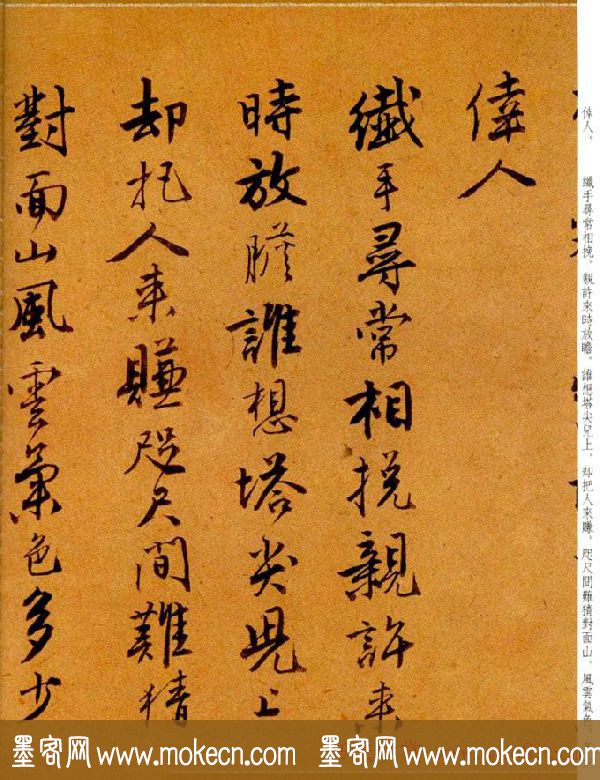 偉人。 纖手尋常相挽，親許來時放瞻。誰想塔尖兒上，却把人來賺。咫尺間難猜對面山，風雲氣色
偉人
纖手尋常相挽親許來
時放瞻誰想塔尖兒上
却把人來賺咫尺間難猜
對面山風雲氣色多少
墨客网 www.mokecn.com 墨客网 www.mokecn.com